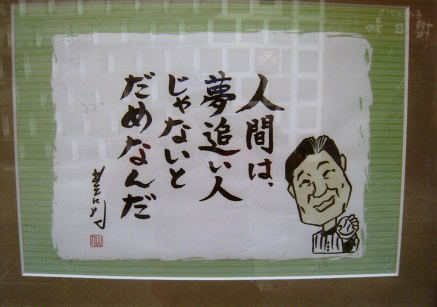 人間は、
夢追い人
じゃないと
だめなんだ